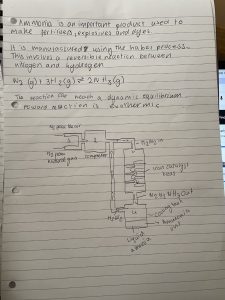 Ammonia is an important product used to
make fertilisers, explosives and dyes.
It is manufactured using the haber process.
This involves a reversible reaction between
nitrogen and hydrogen
N₂ (g) + 3H₂ (g) ⇌ 2NH₃ (g)
The reaction can reach a dynamic equilibrium
Forward reaction is exothermic
N₂ from the air
H₂ from
natural gas
compressor
N₂, H₂ in
iron catalyst
beds
N₂ H₂ NH₃ out
N₂ H₂
cooling
unit
liquid
ammonia